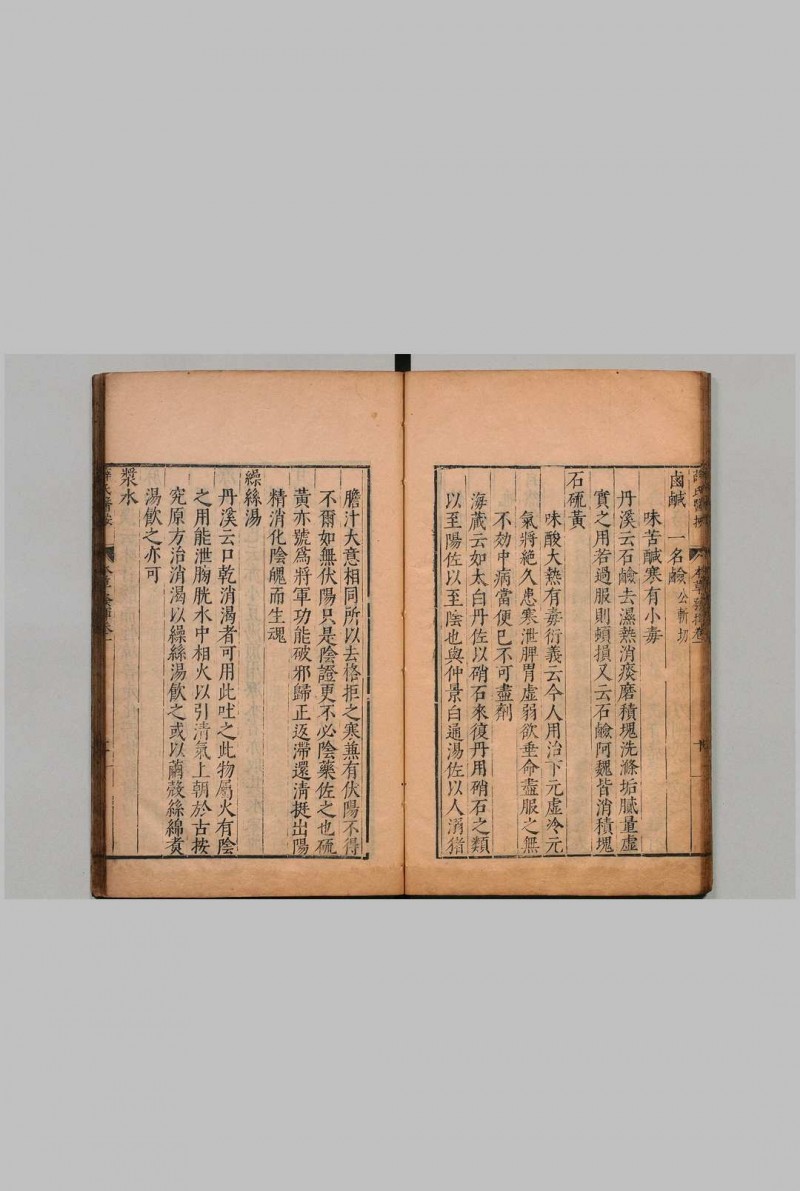 鹵鹹 一名鹼公斬切
味苦鹹寒有小毒
丹溪云石鹼去濕熱消痰磨積塊洗滌垢膩量虛
實之用若過服則頻損又云石鹼阿魏皆消積塊
石硫黃
味酸大熱有毒衍義云今人用治下元虛冷元
氣將絕久患寒泄脾胃虛弱欲垂命盡服之無
不効中病當便已不可盡劑
海藏云如太白丹佐以硝石來復丹用硝石之類
以至陽佐以至陰也與仲景白通湯佐以人溺猪
膽汁大意相同所以去格拒之寒兼有伏陽不得
不爾如無伏陽只是陰證更不必陰藥佐之也硫
黃亦號爲將軍功能破邪歸正返滯還清挺出陽
精消化陰魄而生魂
繰絲湯
丹溪云口乾消渴者可用此吐之此物屬火有陰
之用能泄膀胱水中相火以引清氣上朝於古按
究原方治消渴以繰絲湯飲之或以繭殼絲綿煑
湯飲之亦可
漿水